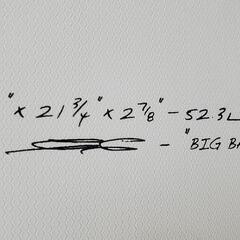 " x 21 3/4" x 2 7/8" - 52.3L
- "BIG BA